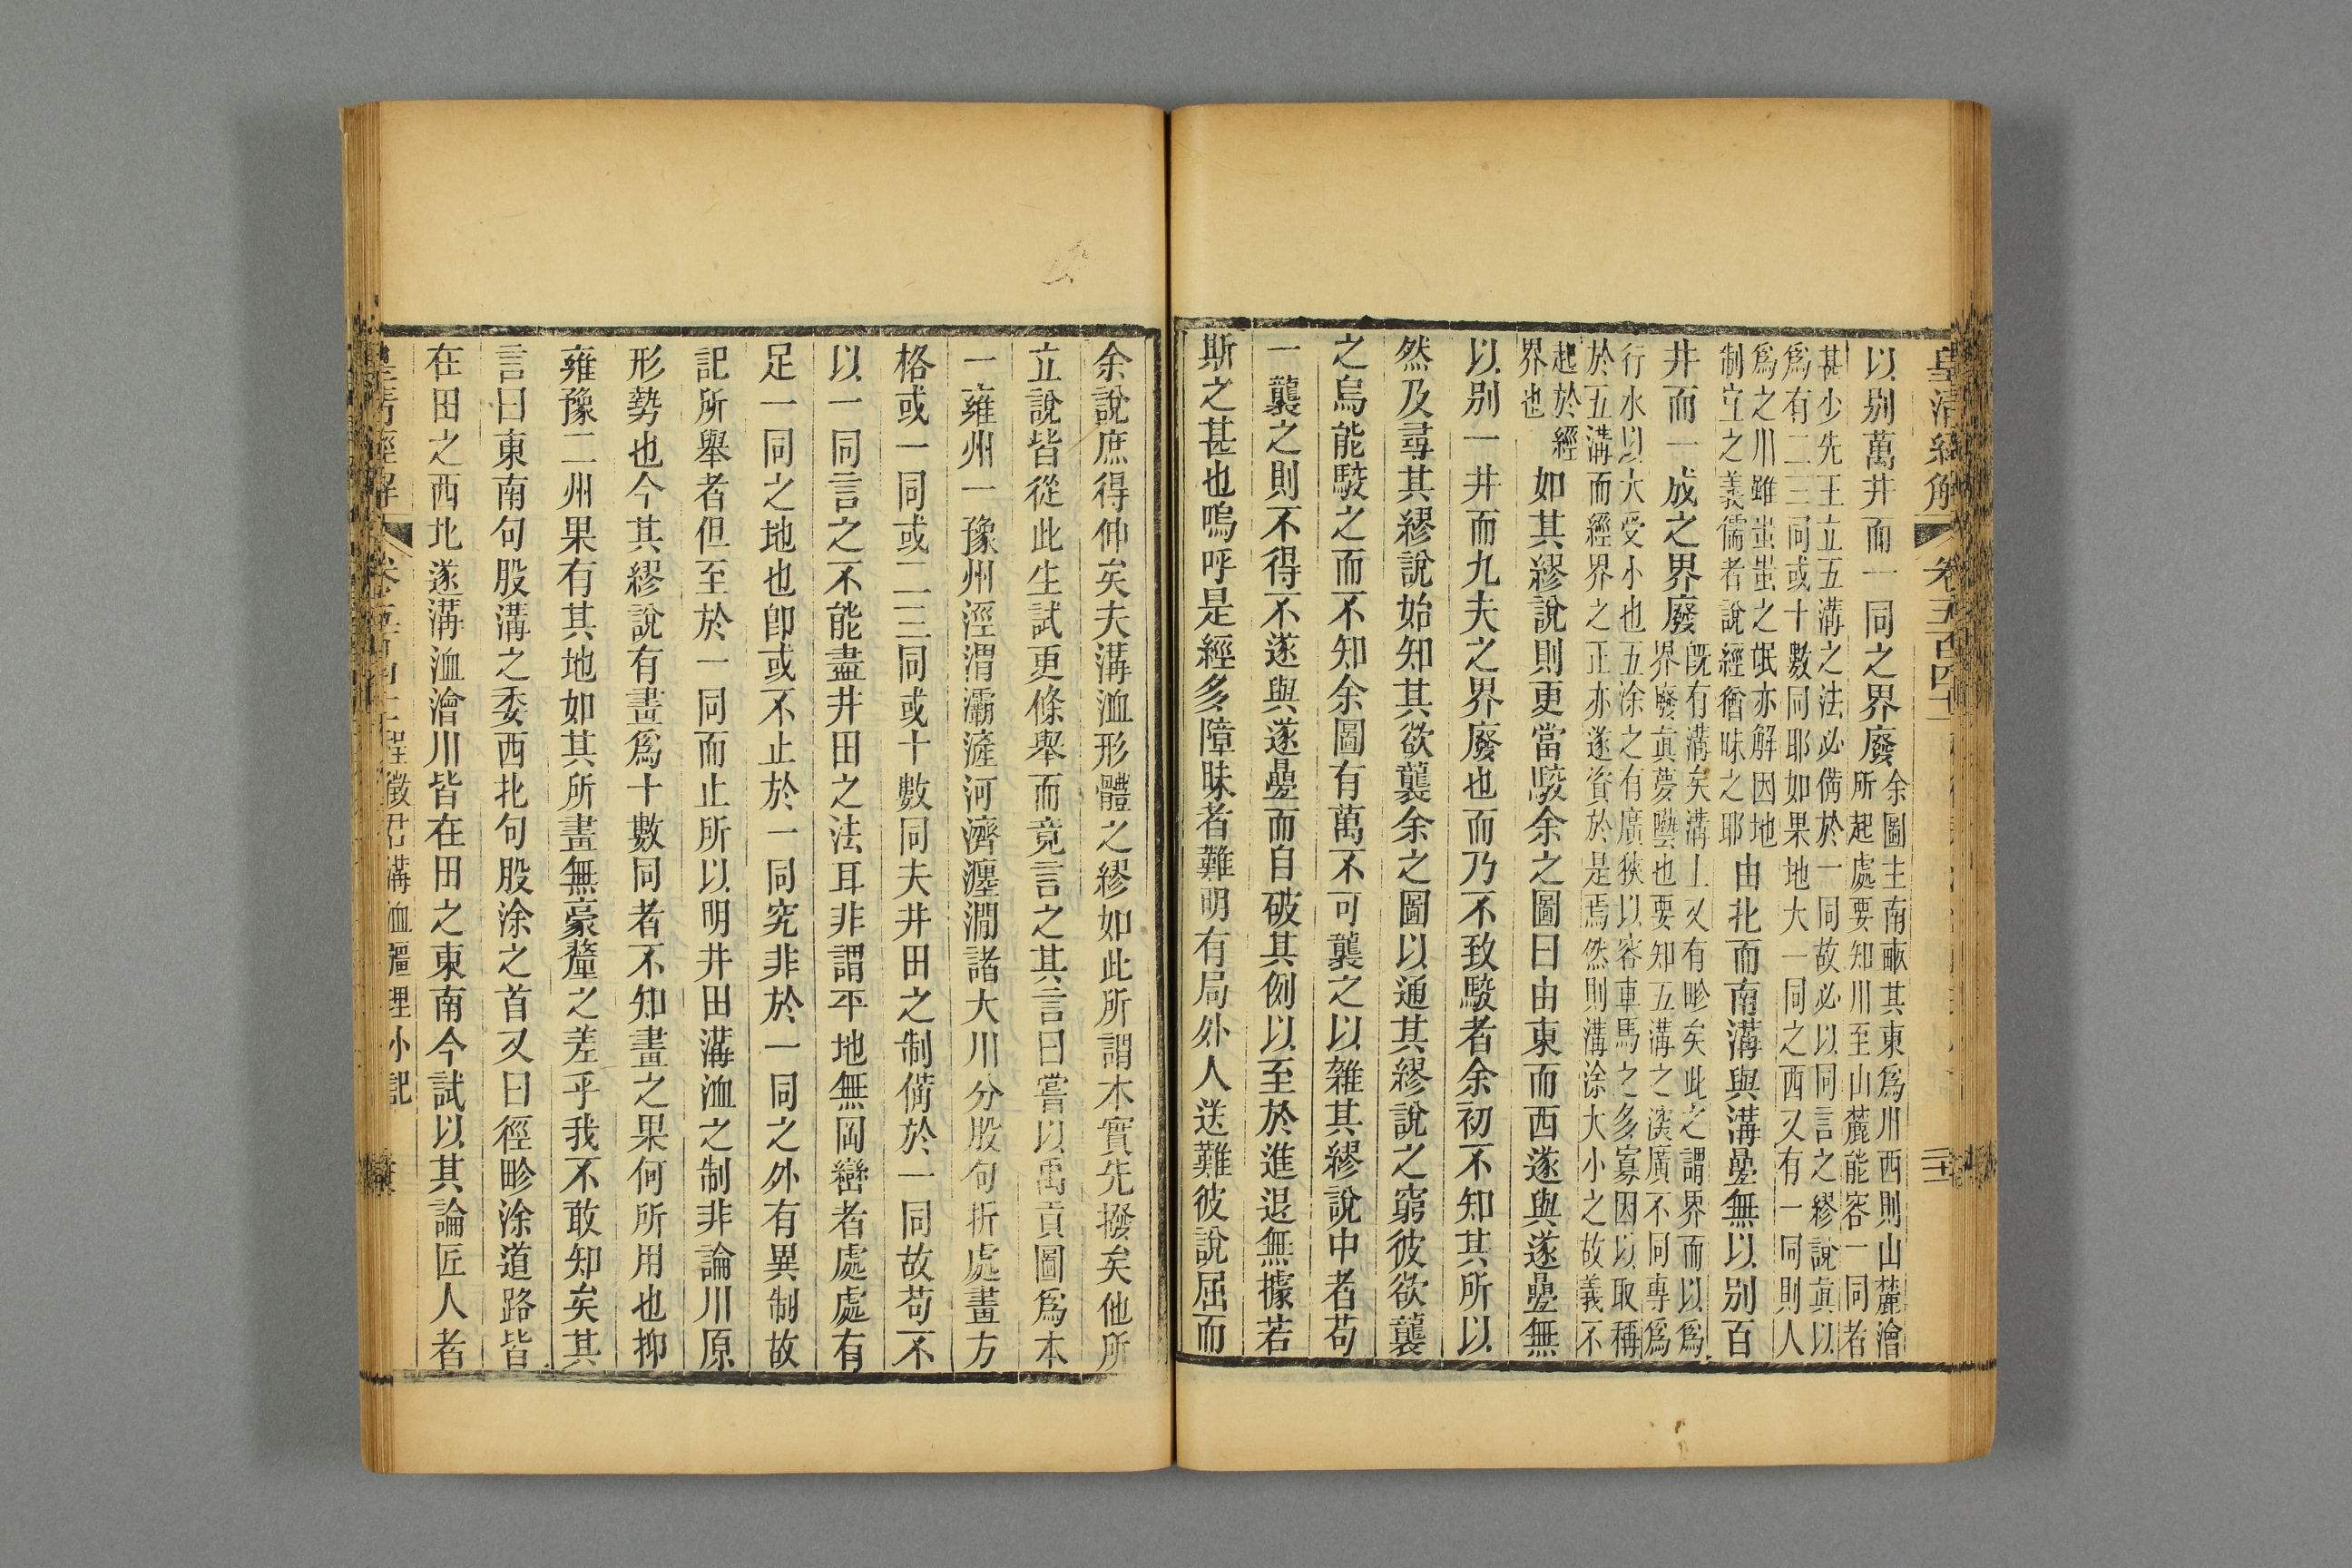 皇清經解 卷五百四十
以别萬井而一同之界廢
余圖主南畝其東爲川西則山麓澮
所起處要知川至山麓能容一同者
甚少先王立五溝之法必備於一同故必以同言之繆說真以
爲有二三同或十數同耶如果地大一同之西又有一同則人
爲之川雖蚩蚩之氓亦解因地
制宜之義儒者說經猶昧之耶
由北而南溝與溝疊無以别百
井而一成之界廢
既有溝矣溝上又有畛矣此之謂界而以爲
界廢真夢囈也要知五溝之淺廣不同專爲
行水以大受小也五涂之有廣狹以容車馬之多寡因以取稱
於五溝而經界之正亦遂資於是焉然則溝涂大小之故義不
起於經
界也
如其繆說則更當駁余之圖曰由東而西遂與遂疊無
以别一井而九夫之界廢也而乃不致駁者余初不知其所以
然及尋其繆說始知其欲襲余之圖以通其繆說之窮彼欲襲
之烏能駁之而不知余圖有萬不可襲之以雜其繆說中者苟
一襲之則不得不遂與遂疊而自破其例以至於進退無據若
斯之甚也嗚呼是經多障昧者難明有局外人送難彼說屈而
余說庶得伸矣夫溝洫形體之繆如此所謂本實先撥矣他所
立說皆從此生試更條舉而竟言之其言曰嘗以禹貢圖爲本
一雍州一豫州涇渭灞滻河濟瀍澗諸大川分股句折處畫方
格或一同或二三同或十數同夫井田之制備於一同故苟不
以一同言之不能盡井田之法耳非謂平地無岡巒者處處有
足一同之地也卽或不止於一同究非於一同之外有異制故
記所舉者但至於一同而止所以明井田溝洫之制非論川原
形勢也今其繆說有畫爲十數同者不知畫之果何所用也抑
雍豫二州果有其地如其所畫無豪釐之差乎我不敢知矣其
言曰東南句股溝之委西北句股涂之首又曰徑畛涂道路皆
在田之西北遂溝洫澮川皆在田之東南今試以其論匠人者
皇清經解 程徵君溝洫疆理小記